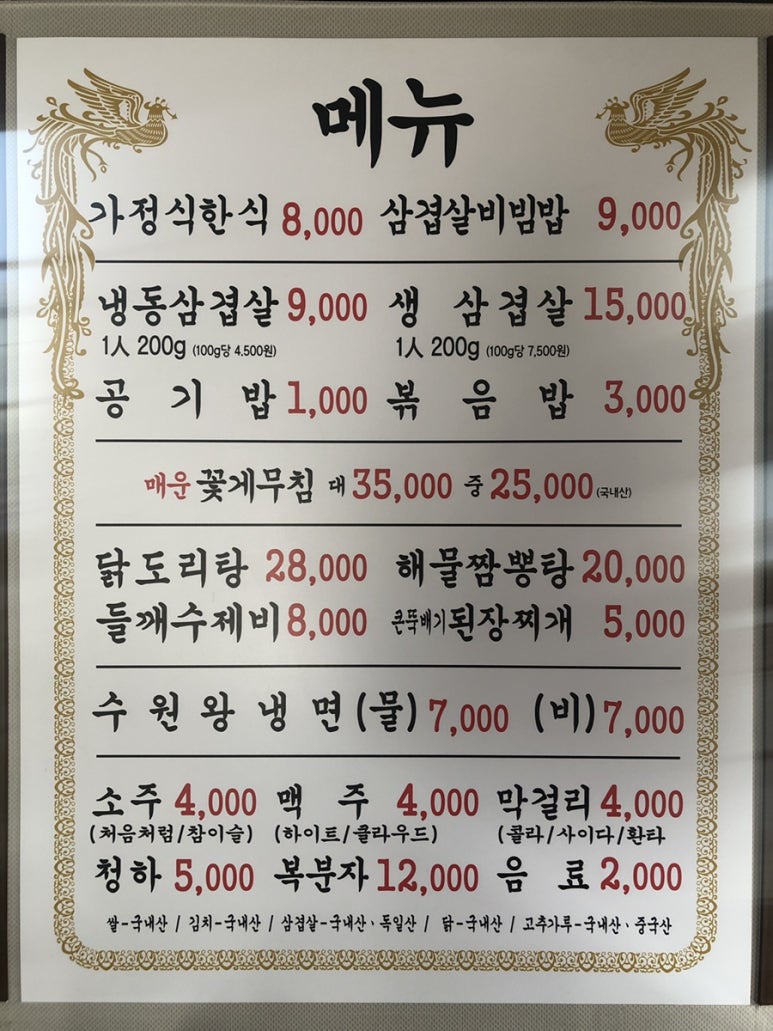 메뉴
가정식한식 8,000 삼겹살비빔밥 9,000
냉동삼겹살 9,000 생 삼겹살 15,000
1人 200g (100g당 4.500원) 1人 200g (100g당 7,500원)
공기밥 1,000 볶음밥 3,000
매운 꽃게무침 대 35,000 중 25,000 (국내산)
닭도리탕 28,000 해물짬뽕탕 20,000
들깨수제비 8,000 큰뚝배기 된장찌개 5,000
수원왕냉면(물) 7,000 (비) 7,000
소주 4,000 맥주 4,000 막걸리 4,000
(처음처럼/참이슬) (하이트/클라우드) (콜라/사이다/환타
청하 5,000 복분자 12,000 음료 2,000
쌀-국내산 / 김치-국내산 / 삼겹살-국내산·독일산 / 닭-국내산 / 고추가루-국내산·중국산